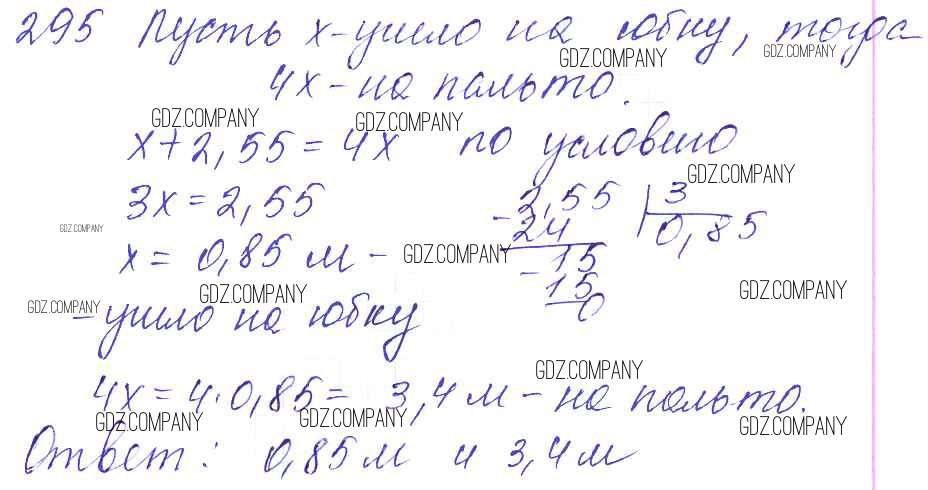 295 Пусть х-ушло на юбку, тогда
GDZ.COMPANY GDZ.COMPANY
4х-на пальто.
GDZ.COMPANY GDZ.COMPANY
х+2,55=4х по условию
GDZ.COMPANY
3х=2,55
2,55 | 3
- 24 0,85
GDZ.COMPANY
х= 0,85 м -
GDZ.COMPANY
- 15
15
0
GDZ.COMPANY GDZ.COMPANY GDZ.COMPANY
- ушло на юбку
GDZ.COMPANY
4х=4·0,85= 3,4м-на пальто.
GDZ.COMPANY GDZ.COMPANY GDZ.COMPANY
Ответ: 0,85м и 3,4м